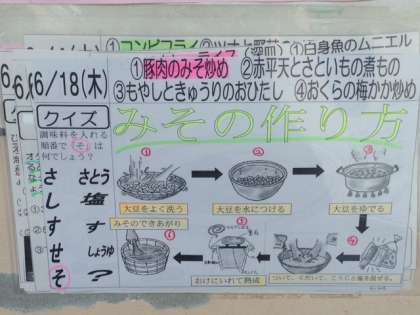 ①コンビフライ
①白身魚のムニエル
6/18(木)
①豚肉のみそ炒め ②赤平天とさといもの煮もの
③もやしときゅうりのおひたし ④おくらの梅かか炒め
クイズ
調味料を入れる
順番で「そ」は
何でしょう？
さ さとう
し 塩
す す
せ しょうゆ
そ ？
みその作り方
①
②
③
大豆をよく洗う
大豆を水につける
大豆をゆでる
みそのできあがり
おけにいれて熟成